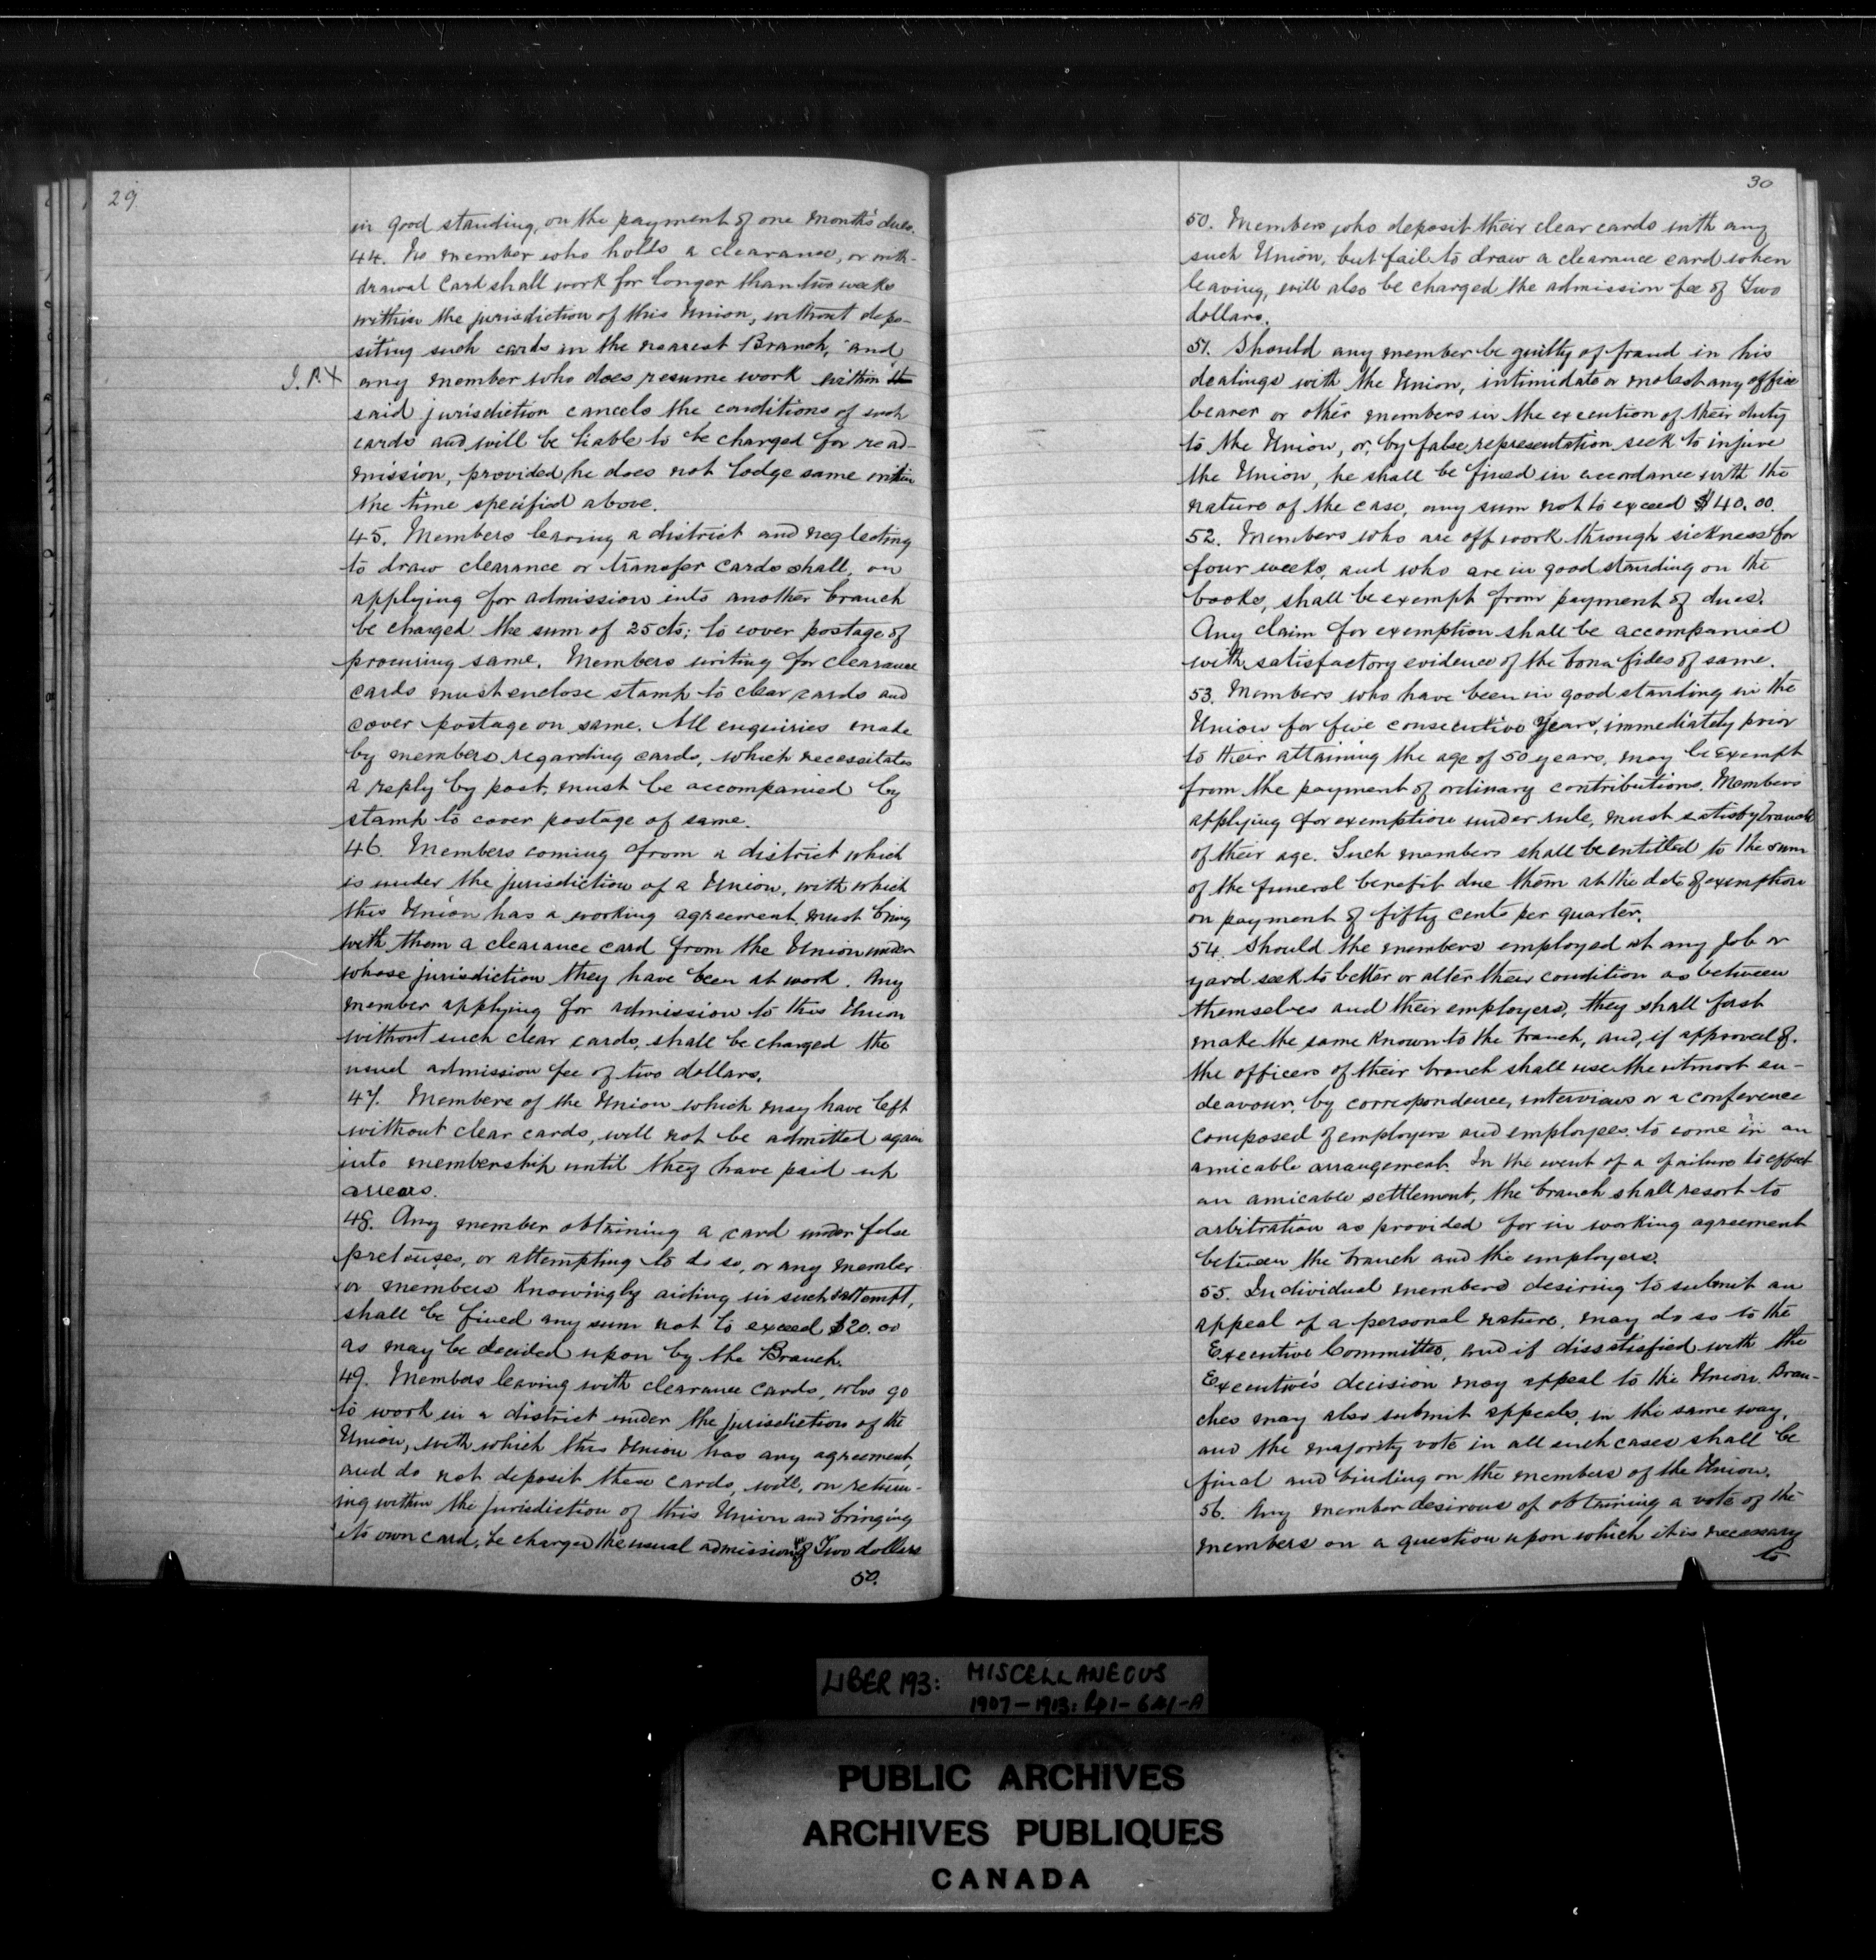 29
in good standing, on the payment of one month's dues.
44. No member who holds a clearance, or with-
drawal Card shall work for longer than two weeks
within the jurisdiction of this Union, without depo-
siting such cards in the nearest Branch, and
any member who does resume work within
said jurisdiction cancels the conditions of such
cards and will be liable to be charged for read-
mission, provided he does not lodge same within
the time specified above.
45. Members leaving a district and neglecting
to draw clearance or transfer cards shall, on
applying for admission into another branch
be charged the sum of 25 cts; to cover postage of
procuring same. Members writing for clearance
cards must enclose stamp to clear cards and
cover postage on same. All enquiries made
by members regarding cards, which necessitates
a reply by post, must be accompanied by
stamp to cover postage of same.
46. Members coming from a district which
is under the jurisdiction of a Union, with which
this Union has a working agreement must bring
with them a clearance card from the Union under
whose jurisdiction they have been at work. Any
member applying for admission to this Union
without such clear cards, shall be charged the
usual admission fee of two dollars.
47. Members of the Union which may have left
without clear cards, will not be admitted again
into membership until they have paid up
arrears.
48. Any member obtaining a card under false
pretenses, or attempting to do so, or any member
or members knowingly aiding in such attempt,
shall be fined any sum not to exceed $20.00
as may be decided upon by the Branch.
49. Members leaving with clearance cards, who go
to work in a district under the jurisdiction of the
Union, with which this Union has any agreement,
and do not deposit these cards, will, on return-
ing within the jurisdiction of this Union and bringing
its own card, be charged the usual admission of Two dollars
50.
30
50. Members who deposit their clear cards with any
such Union, but fail to draw a clearance card when
leaving, will also be charged the admission fee of Two
dollars.
51. Should any member be guilty of fraud in his
dealings with the Union, intimidate or molest any office
bearer or other members in the execution of their duty
to the Union, or, by false representation seek to injure
the Union, he shall be fined in accordance with the
nature of the case, any sum not to exceed $40.00.
52. Members who are off work through sickness for
four weeks, and who are in good standing on the
books, shall be exempt from payment of dues.
Any claim for exemption shall be accompanied
with satisfactory evidence of the bona fides of same.
53. Members who have been in good standing in the
Union for five consecutive years, immediately prior
to their attaining the age of 50 years, may be exempt
from the payment of ordinary contributions. Members
applying for exemption under rule, must satisfy branch
of their age. Such members shall be entitled to the sum
of the funeral benefit due them at the date of exemption
on payment of fifty cents per quarter.
54. Should the members employed at any job or
yard seek to better or alter their condition as between
themselves and their employers, they shall first
make the same known to the branch, and, if approved of.
the officers of their branch shall use the utmost en-
deavour, by correspondence, interviews or a conference
composed of employers and employees to come in an
amicable arrangement. In the event of a failure to effect
an amicable settlement, the branch shall resort to
arbitration as provided for in working agreement
between the branch and the employers.
55. Individual members desiring to submit an
appeal of a personal nature, may do so to the
Executive Committee, and if dissatisfied with the
Executive's decision may appeal to the Union. Bran-
ches may also submit appeals in the same way,
and the majority vote in all such cases shall be
final and binding on the members of the Union.
56. Any member desirous of obtaining a vote of the
members on a question upon which it is necessary
to
LIBER 193: MISCELLANEOUS
1907-1913:
PUBLIC ARCHIVES
ARCHIVES PUBLIQUES
CANADA